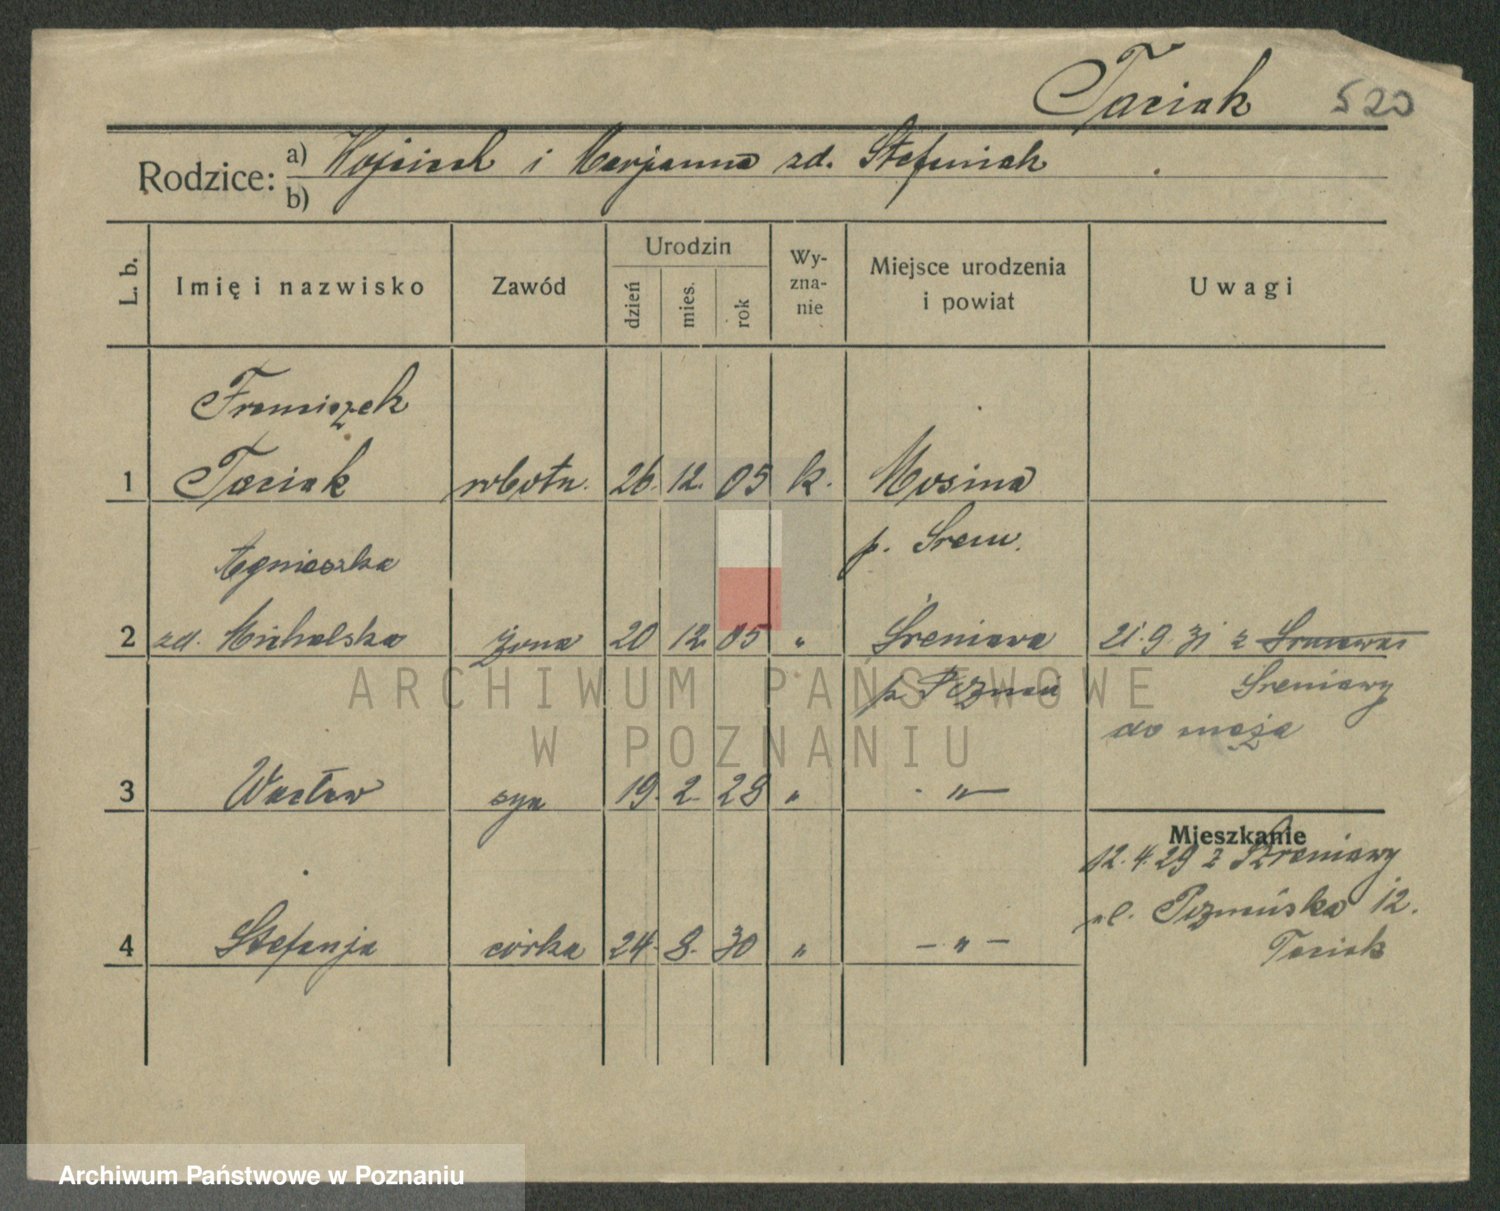 Taciak 520
Rodzice: a) Wojciech i Marjanna zd. Stefaniak
b)
L. b. Imię i nazwisko Zawód Urodzin dzień mies. rok Wyznanie Miejsce urodzenia i powiat Uwagi
Franciszek
1 Taciak robotn. 26. 12. 05 k. Mosina
p. Śrem.
Agnieszka
2 zd. Michalska żona 20 12. 05 " Śreniawa 21.9.31 z
p. Poznań Sreniawy
do męża
3 Wacław syn 19. 2. 28 " - " -
Mieszkanie
12.4.29 z Sreniawy
ul. Poznańska 12.
4 Stefanja córka 24. 8. 30 " - " - Taciak
ARCHIWUM PAŃSTWOWE
W POZNANIU
Archiwum Państwowe w Poznaniu